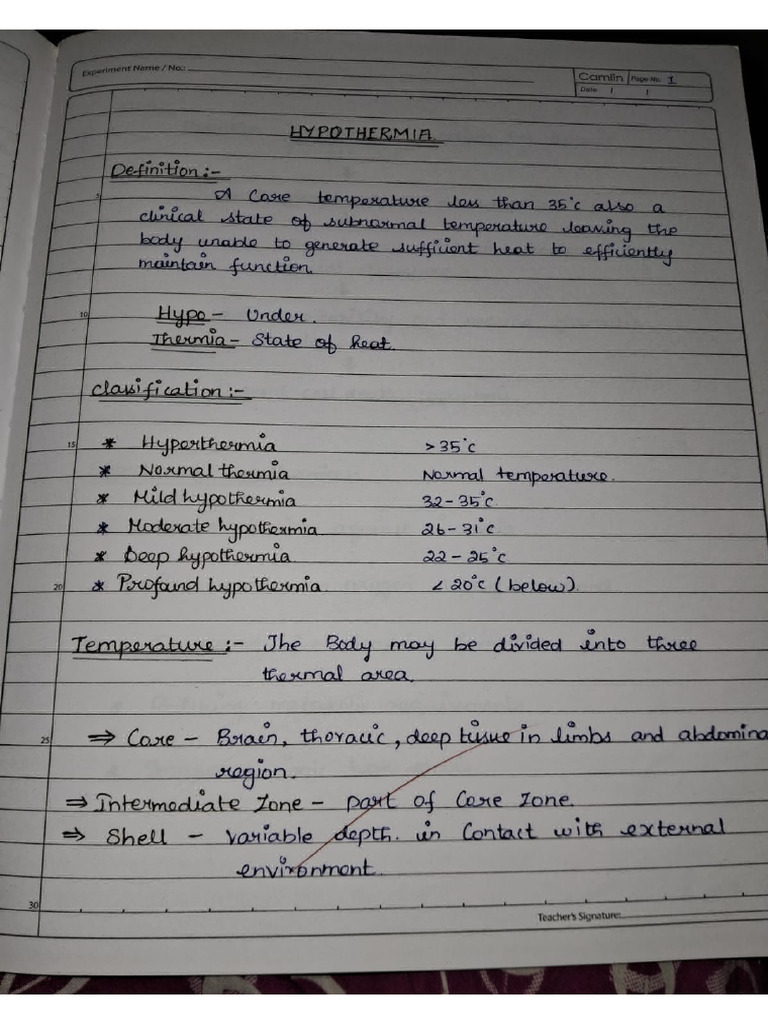 Experiment Name / No.:
Camlin Page No. 1
Date / /
HYPOTHERMIA
Definition :-
A Core temperature less than 35°c also a
clinical state of subnormal temperature leaving the
body unable to generate sufficient heat to efficiently
maintain function.
Hypo - Under.
Thermia - State of heat.
Classification :-
* Hyperthermia >35°c
* Normal thermia Normal temperature.
* Mild hypothermia 32-35°c
* Moderate hypothermia 26-31°c
* Deep hypothermia 22-25°c
* Profand hypothermia <20°c (below)
Temperature :- The Body may be divided into three
thermal area.
⇒ Core - Brain, thoracic, deep tissue in limbs and abdomina
region.
⇒ Intermediate Zone - part of Core Zone.
⇒ Shell - Variable depth. in Contact with external
environment.
Teacher's Signature: